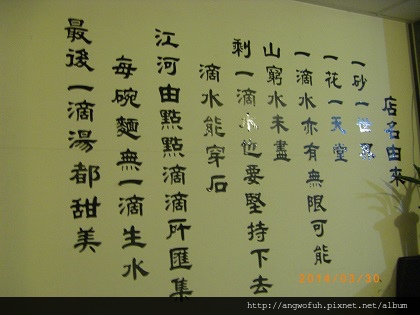 店名由來
一砂一世界
一花一天堂
一滴水亦有無限可能
山窮水未盡
剩一滴水也要堅持下去
滴水能穿石
江河由點點滴滴所匯集
每碗麵無一滴生水
最後一滴湯都甜美
2010/01/30
http://angwofuh.pixnet.net/album